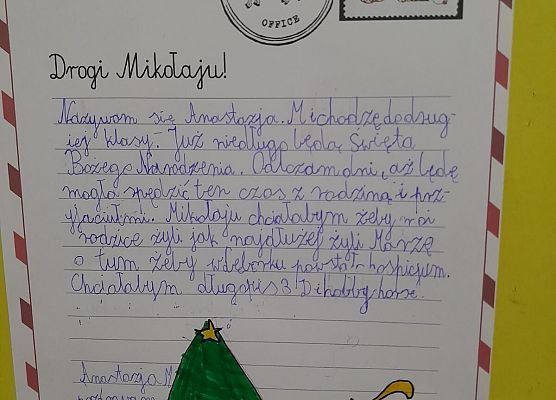 OFFICE
Drogi Mikołaju!
Nazywam się Anastazja. M i chodzę do drug-
iej klasy. Już niedługo będą Święta
Bożego Narodzenia. Odliczam dni, aż będę
mogła spędzić ten czas z rodziną i prz-
yjaciółmi. Mikołaju chciałabym żeby moi
rodzice żyli jak najdłużej żyli Marzę
o tym żeby w lęborku powstało hospicjum.
Chciałabym długopis 3D i hobby horse.
Anastazja M